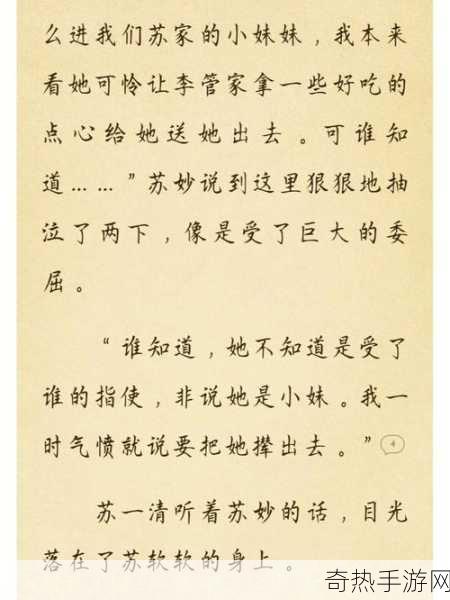 么进我们苏家的小妹妹，我本来
看她可怜让李管家拿一些好吃的
点心给她送她出去。可谁知
道……”苏妙说到这里狠狠地抽
泣了两下，像是受了巨大的委
屈。
“谁知道，她不知道是受了
谁的指使，非说她是小妹。我一
时气愤就说要把她撵出去。”
4
苏一清听着苏妙的话，目光
落在了苏软软的身上。
奇热手游网